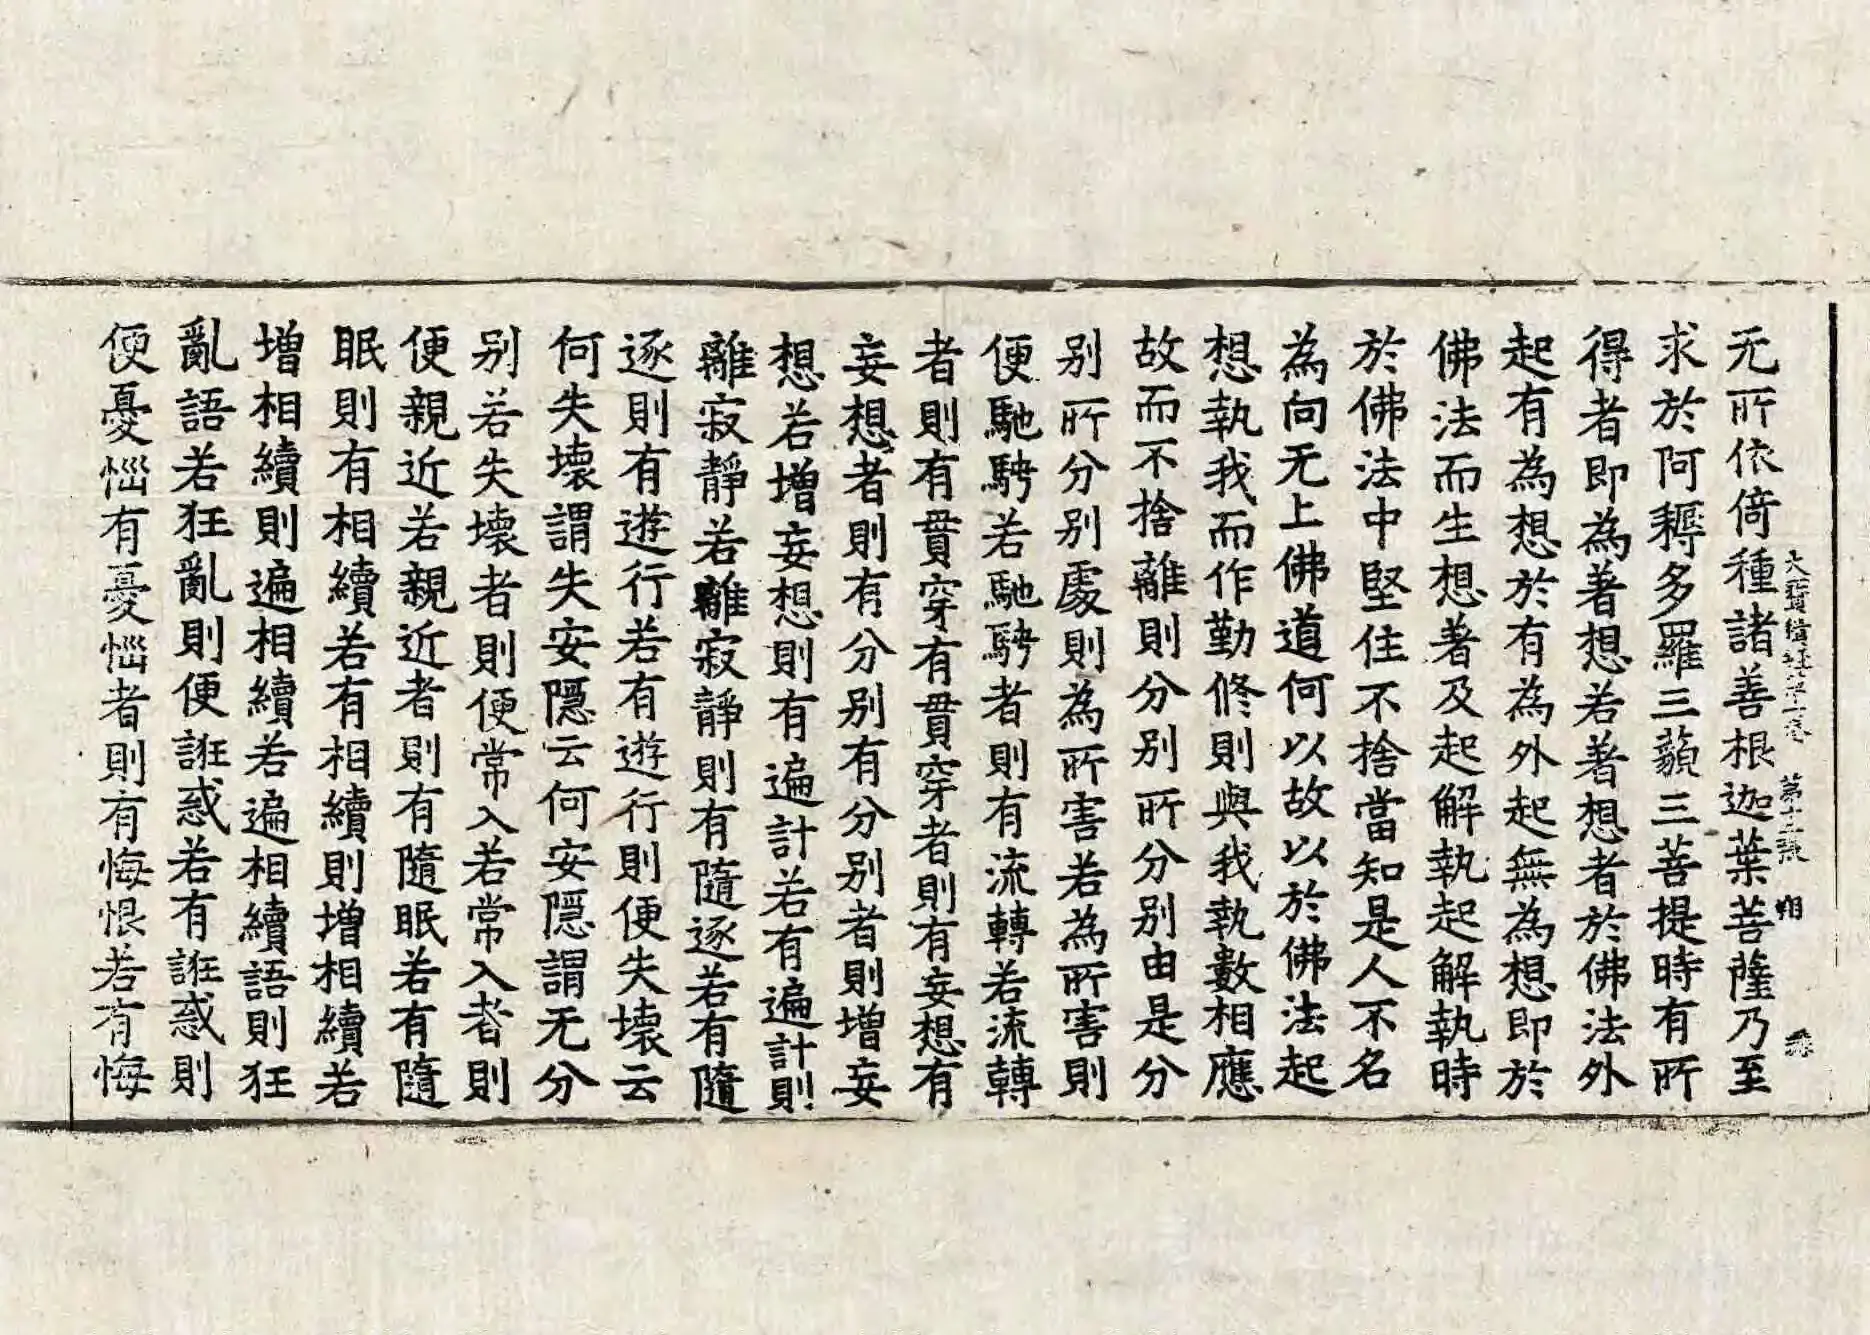 大寶積經第十卷　第十二張　翔
无所依倚種諸善根迦葉菩薩乃至
求於阿耨多羅三藐三菩提時有所
得者即為著想若著想者於佛法外
起有為想於有為外起無為想即於
佛法而生想著及起解執起解執時
於佛法中堅住不捨當知是人不名
為向无上佛道何以故以於佛法起
想執我而作勤修則與我執數相應
故而不捨離則分別所分別由是分
別所分別處則為所害若為所害則
便馳騁若馳騁者則有流轉若流轉
者則有貫穿有貫穿者則有妄想有
妄想者則有分別有分別者則增妄
想若增妄想則有遍計若有遍計則
離寂靜若離寂靜則有隨逐若有隨
逐則有遊行若有遊行則便失壞云
何失壞謂失安隱云何安隱謂无分
別若失壞者則便常入若常入者則
便親近若親近者則有隨眠若有隨
眠則有相續若有相續則增相續若
增相續則遍相續若遍相續語則狂
亂語若狂亂則便誑惑若有誑惑則
便憂惱有憂惱者則有悔恨若有悔